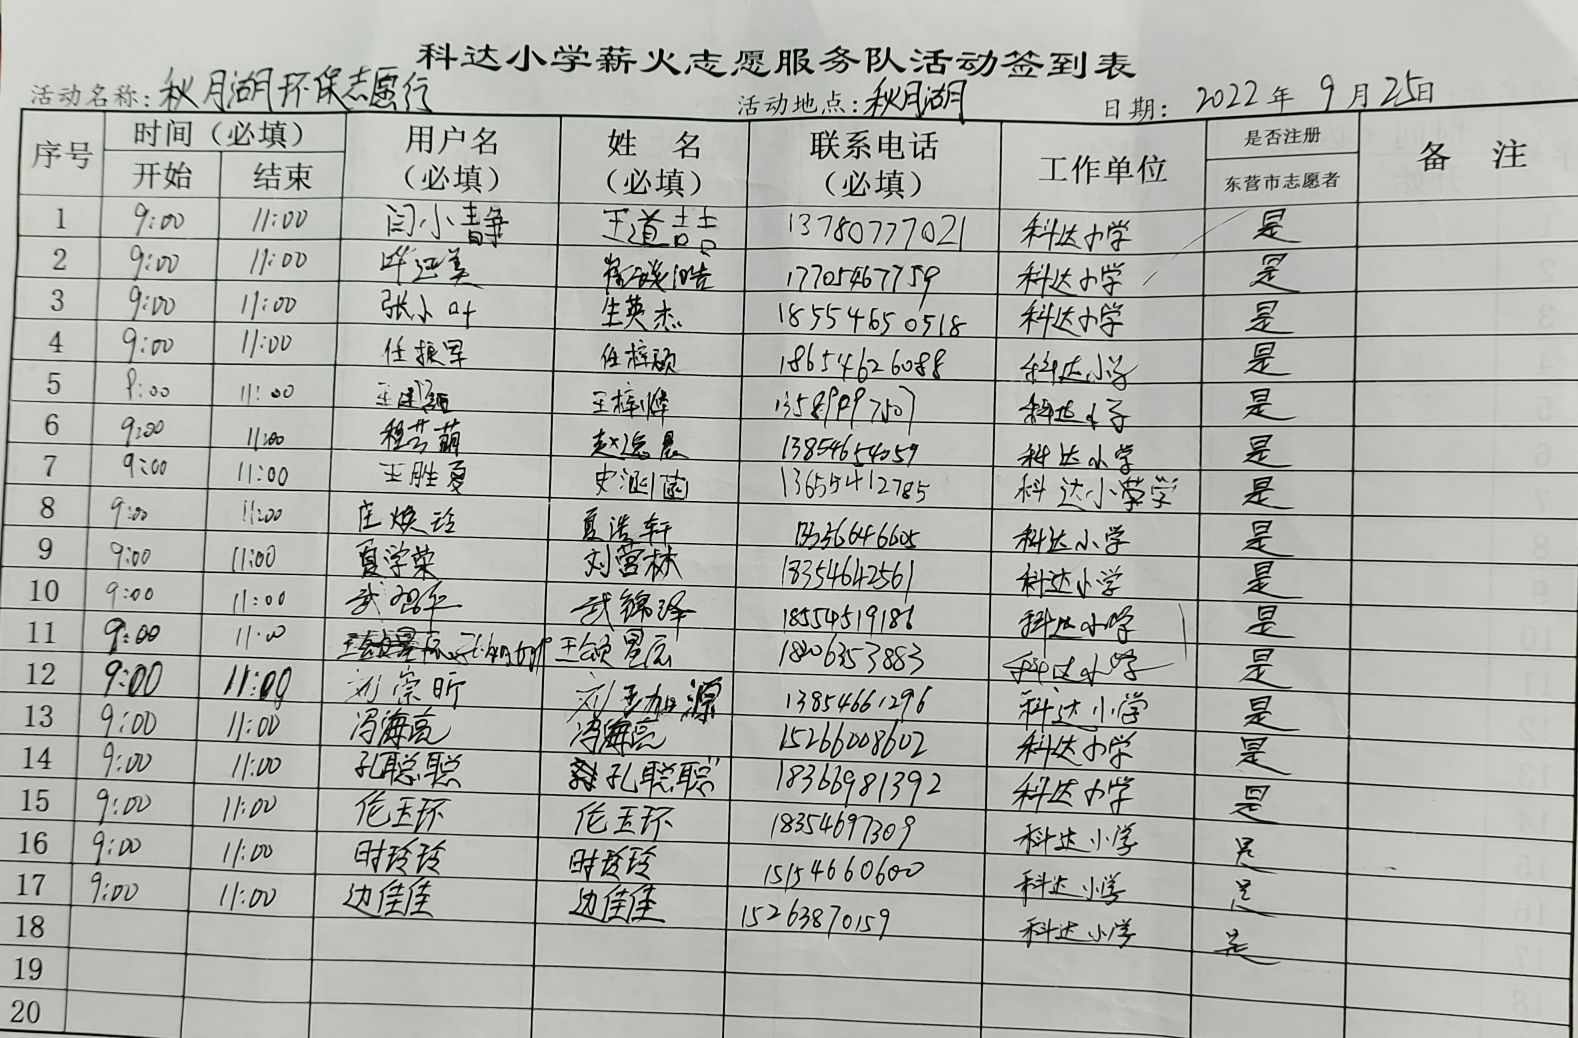 科达小学薪火志愿服务队活动签到表
活动名称：秋月湖环保志愿行 活动地点：秋月湖 日期： 2022 年 9 月 25日
序号 时间（必填） 用户名（必填） 姓 名（必填） 联系电话（必填） 工作单位 是否注册 备 注
开始 结束 东营市志愿者
1 9:00 11:00 闫小静 王道喆 13780777021 科达小学 是
2 9:00 11:00 17705467759 科达小学 是
3 9:00 11:00 张小叶 生英杰 18554650518 科达小学 是
4 9:00 11:00 任振军 任梓硕 18654626088 科达小学 是
5 11:00 王梓烨 科达小学 是
6 9:00 11:00 程芸萌 13854654059 科达小学 是
7 9:00 11:00 王胜夏 史涵菡 13655412785 科达小学 是
8 9:00 11:00 庄焕玲 夏浩轩 13336646605 科达小学 是
9 9:00 11:00 夏学荣 刘营林 18354642561 科达小学 是
10 9:00 11:00 武强平 武锦泽 18554519186 科达小学 是
11 9:00 11:00 王颂景辰 科达小学 是
12 9:00 11:00 刘崇昕 刘玉加源 13854661296 科达小学 是
13 9:00 11:00 冯海亮 冯海亮 15266008602 科达小学 是
14 9:00 11:00 孔聪聪 孔聪聪 18366981392 科达小学 是
15 9:00 11:00 伦玉环 伦玉环 18354697309 科达小学 是
16 9:00 11:00 时玲玲 时玲玲 15154660600 科达小学 是
17 9:00 11:00 边佳佳 边佳佳 15263870159 科达小学 是
18
19
20